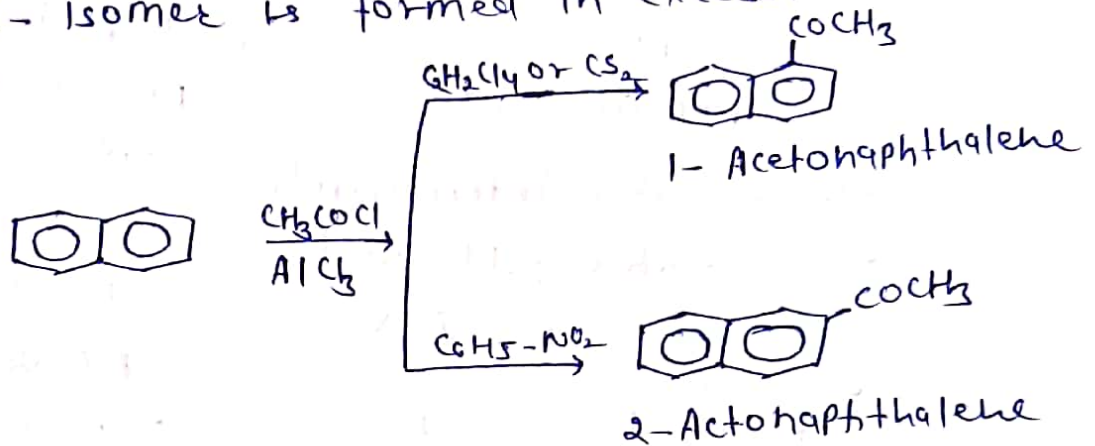 - Isomer is formed in
COCH3
C2H2Cl4 or CS2
1- Acetonaphthalene
CH3COCl
AlCl3
COCH3
C6H5-NO2
2-Actonaphthalene